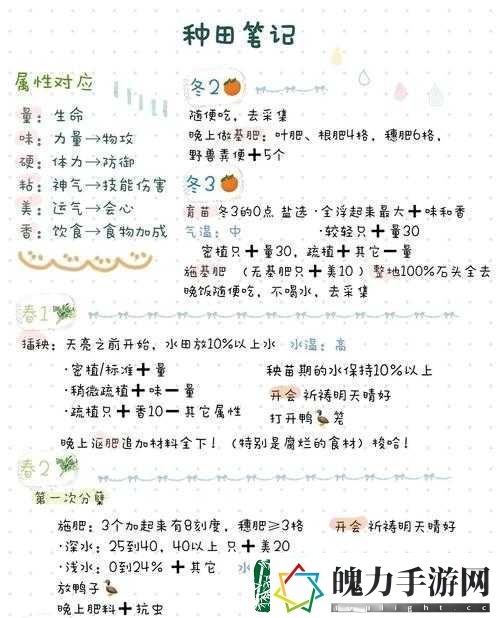 种田笔记
属性对应
量：生命
味：力量→物攻
硬：体力→防御
粘：神气→技能伤害
美：运气→会心
香：饮食→食物加成
冬2
随便吃，去采集
晚上做基肥：叶肥、根肥4格，穗肥6格，
野兽粪便+5个
冬3
育苗 冬3的0点 盐选 ·全浮起来最大+味和香
气温：中 ·较轻只+量30
密植只+量30，疏植+其它-量
施基肥（无基肥只+美10）整地100%石头全去
晚饭随便吃，不喝水，去采集
春1
插秧：天亮之前开始，水田放10%以上水 水温：高
·密植/标准+量
·稍微疏植+味-量
·疏植只+香10-其它属性
秧苗期的水保持10%以上
开会 祈祷明天晴好
打开鸭笼
晚上沤肥追加材料全下！（特别是腐烂的食材）梭哈！
春2
第一次分蘖
施肥：3个加起来有8刻度，穗肥≥3格 开会 祈祷明天晴好
·深水：25到40，40以上 只+美20
·浅水：0到24% +其它 水
放鸭子
晚上肥料+抗虫
魄力手游网